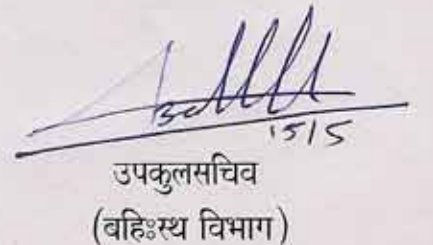 15/5
उपकुलसचिव
(बहिःस्थ विभाग)